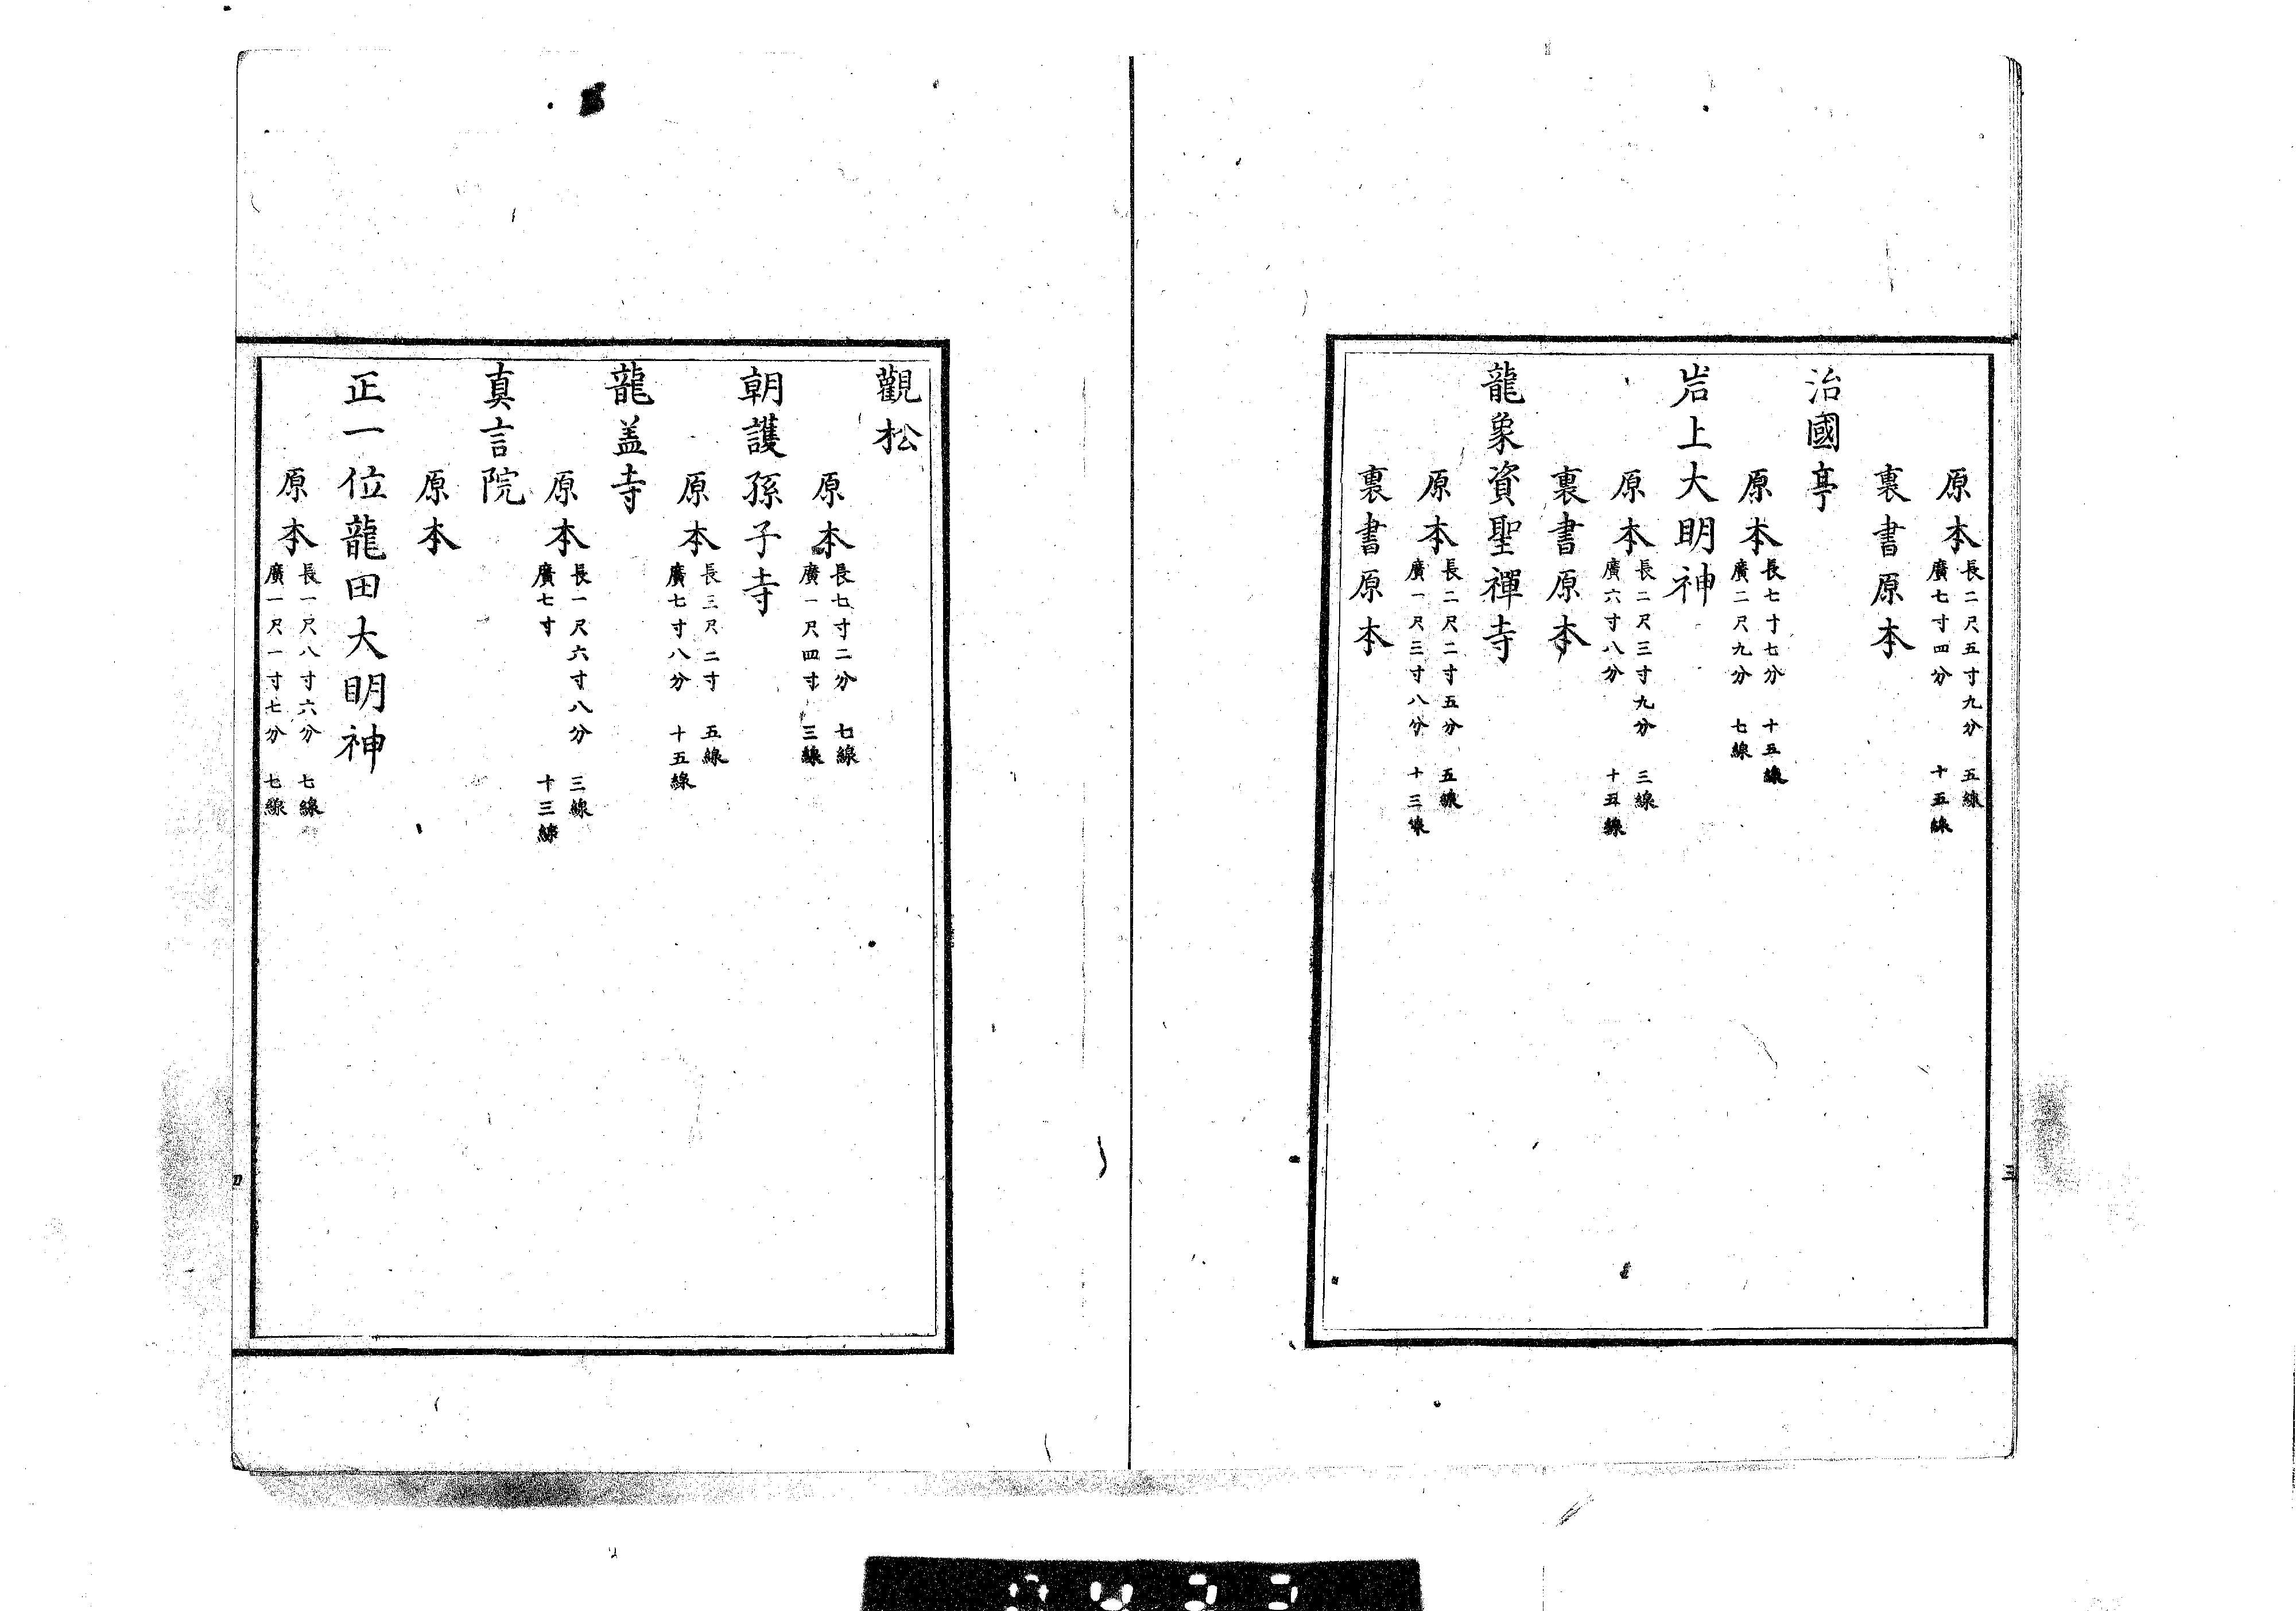 原本長二尺五寸九分 五線
廣七寸四分 十五線
裏書原本
治國亭
原本長七寸七分 十五線
廣二尺九分 七線
岩上大明神
原本長二尺三寸九分 三線
廣六寸八分 十五線
裏書原本
龍象資聖禪寺
原本長二尺二寸五分 五線
廣一尺三寸八分 十三線
裏書原本
三
觀松
原本長七寸二分 七線
廣一尺四寸 三線
朝護孫子寺
原本長三尺二寸 五線
廣七寸八分 十五線
龍盖寺
原本長一尺六寸八分 三線
廣七寸 十三線
真言院
原本
正一位龍田大明神
原本長一尺八寸六分 七線
廣一尺一寸七分 七線